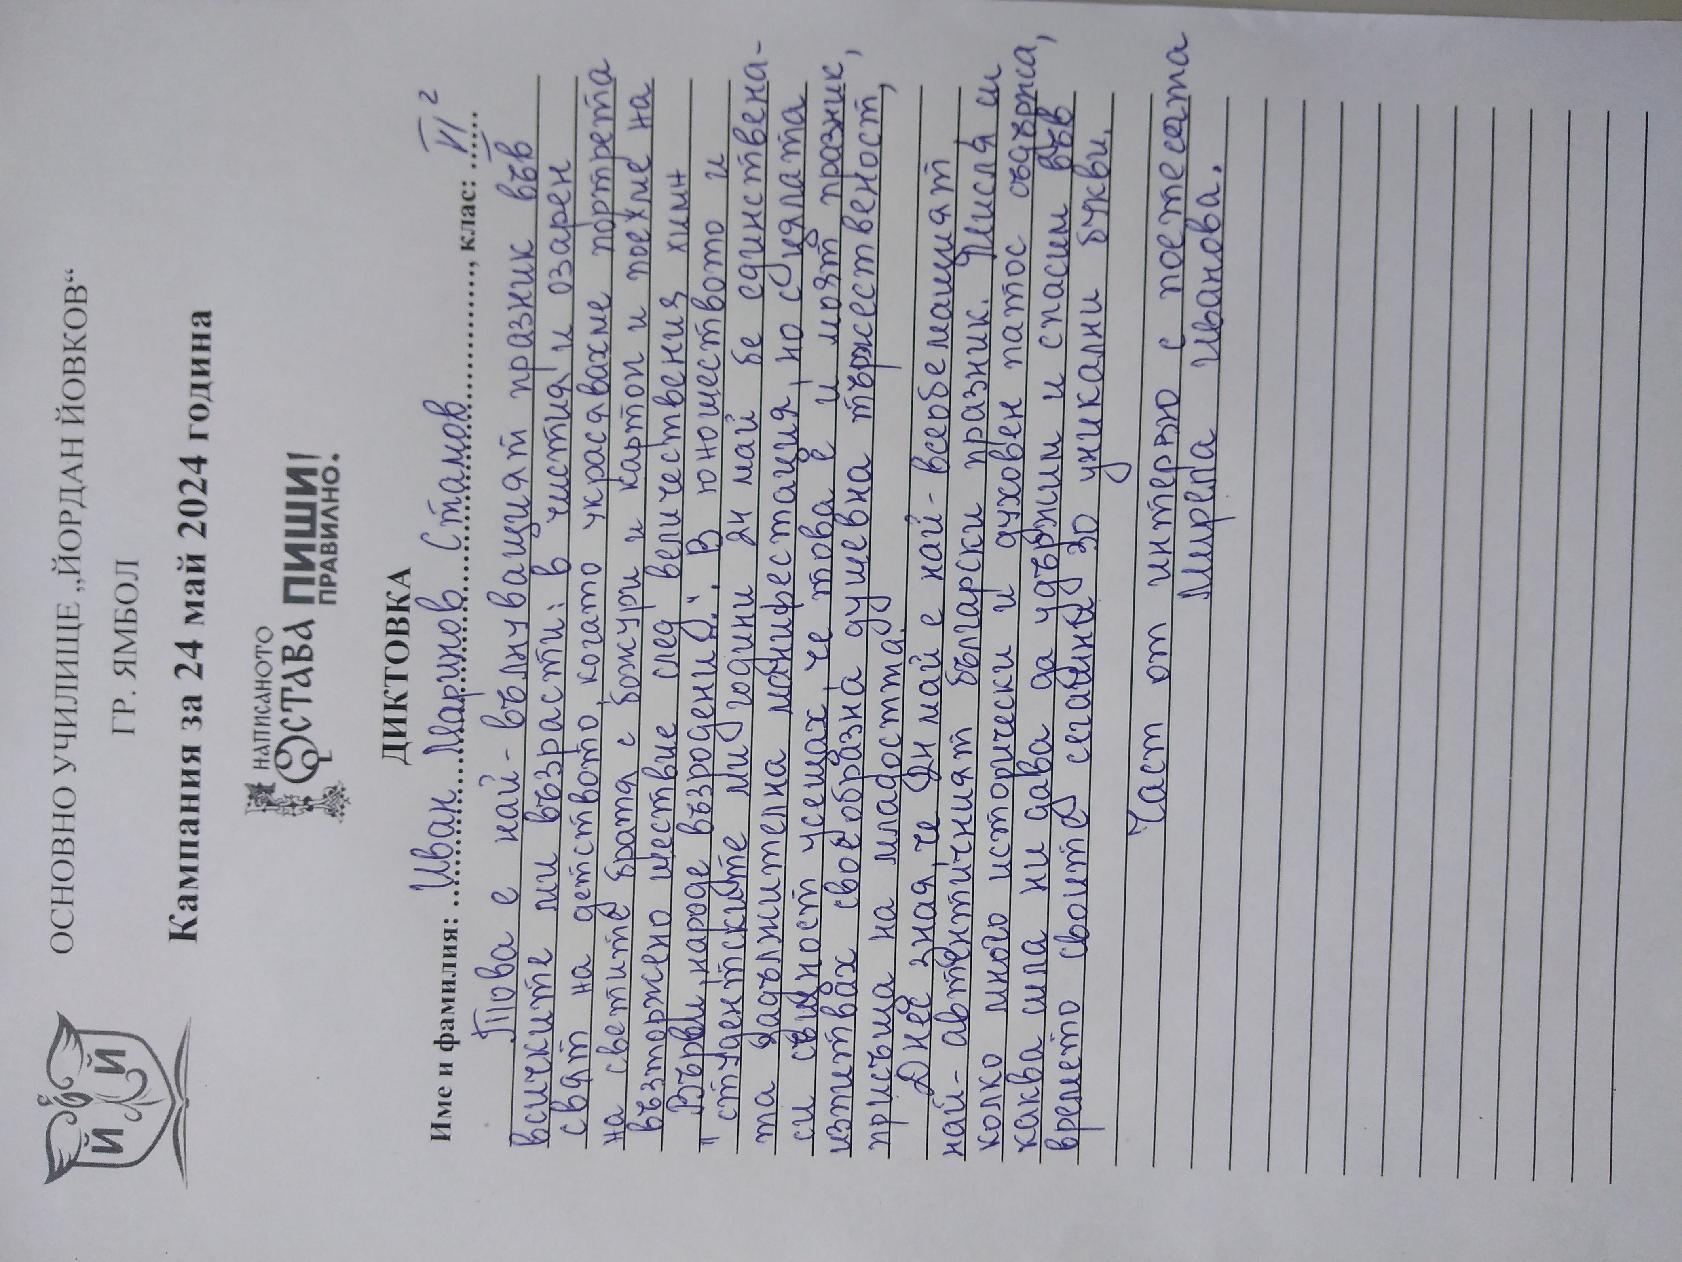 ОСНОВНО УЧИЛИЩЕ „ЙОРДАН ЙОВКОВ“
ГР. ЯМБОЛ
Кампания за 24 май 2024 година
Й Й
НАПИСАНОТО
ОСТАВА ПИШИ!
ПРАВИЛНО.
ДИКТОВКА
Име и фамилия: Иван Маринов Стамов, клас: VI²
Това е най-вълнуващият празник във
всичките ми възрасти: в чистия и озарен
свят на детството, когато украсявахме портрета
на светите братя с божури и картон и поехме на
възторжено шествие след величествения химн
"Върви, народе възродени!". В юношеството и
студентските ми години 24 май бе единствена-
та задължителна манифестация, но с цялата
си същност усещах, че това е и моят празник,
изпитвах своеобразна душевна тържественост,
присъща на младостта.
Днес зная, че 24 май е най-всеобемащият,
най-автентичният български празник. Мисля си
колко много исторически и духовен патос съдържа,
каква сила ни дава да удържим и спасим във
времето своите сегашни 30 уникални букви.
Част от интервю с поетесата
Мирела Иванова.